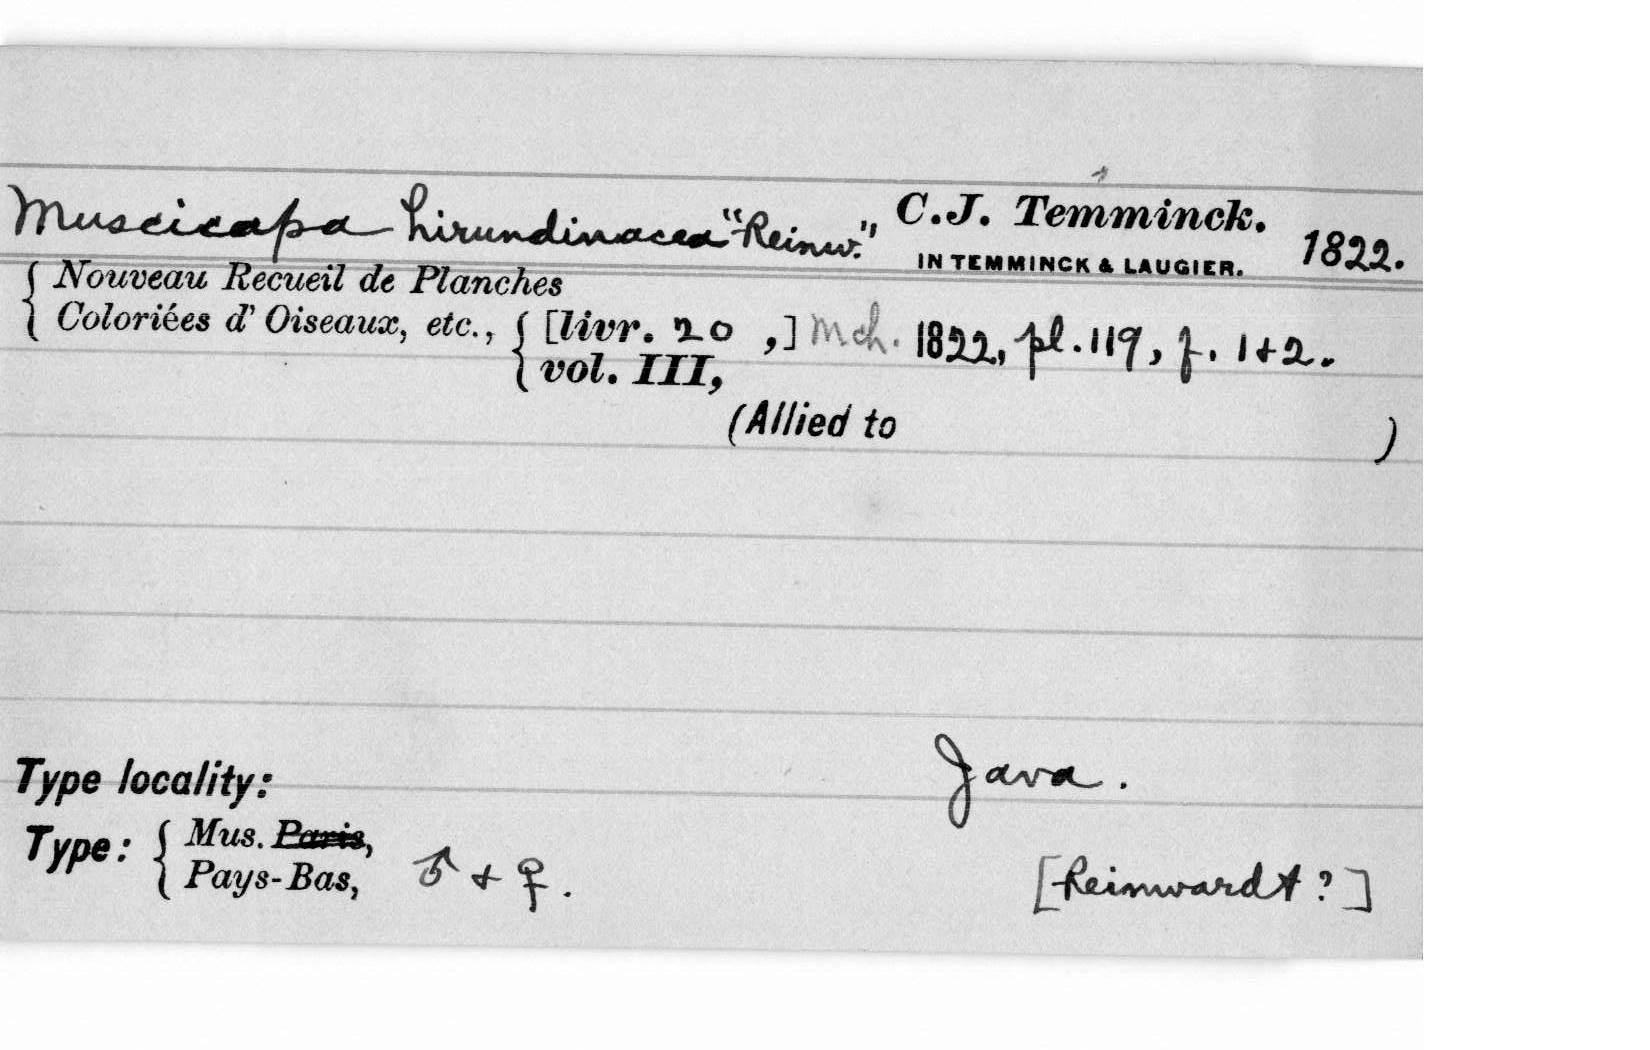 Muscicapa hirundinacea "Reinw." C.J. Temminck. 1822.
IN TEMMINCK & LAUGIER.
Nouveau Recueil de Planches
Coloriées d'Oiseaux, etc., [livr. 20 ,] Mch. 1822, pl. 119, f. 1+2.
vol. III,
(Allied to )
Type locality: Java.
Type: Mus. Paris,
Pays-Bas, ♂ + ♀. [Reinwardt?]